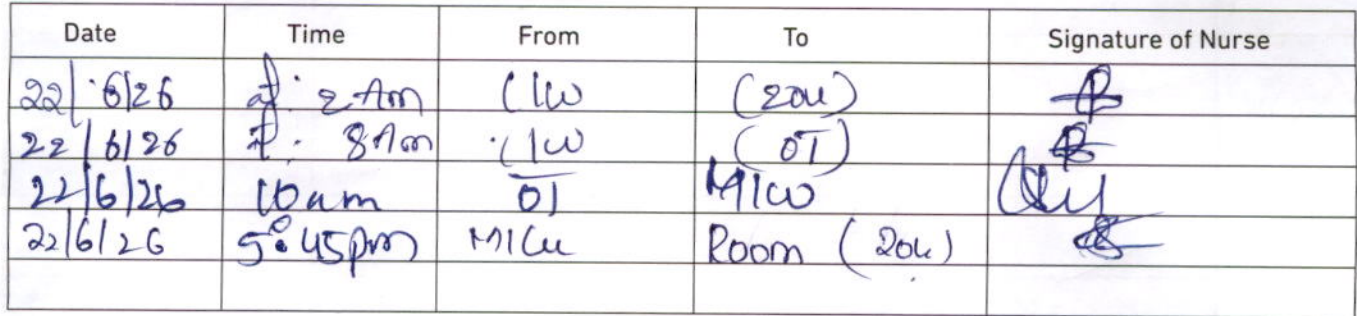 Date Time From To Signature of Nurse
22/6/26 at: 2 Am (204)
22/6/26 8 Am (OT)
22/6/26 10am OT MICU
22/6/26 5:45pm MICU Room (204)